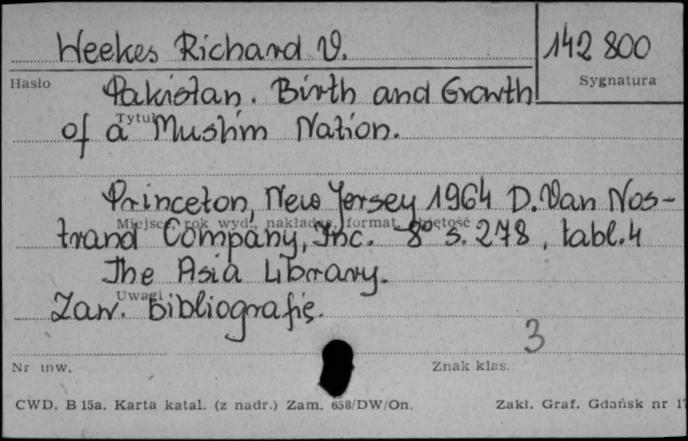 Weekes Richard V.
142 800
Hasło
Sygnatura
Pakistan. Birth and Growth
Tytuł
of a Muslim Nation.
Princeton, New Jersey 1964 D. Van Nos-
Miejsce, rok wyd., nakładca, format, objętość
trand Company, Inc. 8° s. 278, tabl. 4
The Asia Library.
Uwagi
Zaw. bibliografię.
3
Nr inw.
Znak klas.
CWD. B 15a. Karta katal. (z nadr.) Zam. 658/DW/On.
Zakł. Graf. Gdańsk nr 17